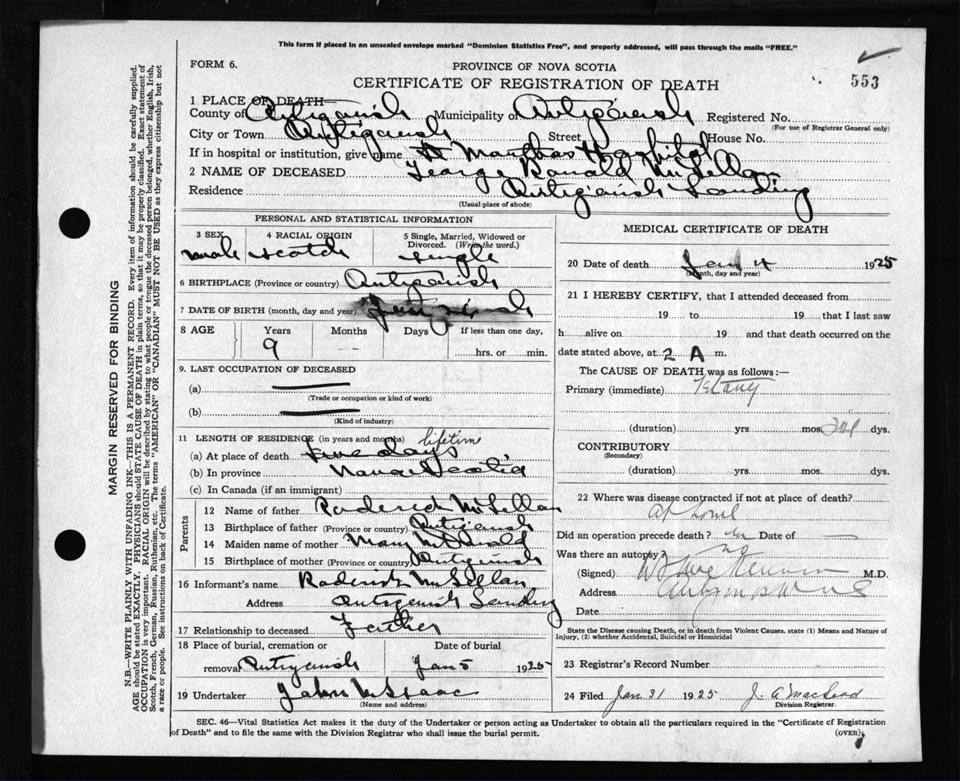 This form if placed in an unsealed envelope marked "Dominion Statistics Free", and properly addressed, will pass through the mails "FREE."
FORM 6.
PROVINCE OF NOVA SCOTIA
CERTIFICATE OF REGISTRATION OF DEATH
553
1 PLACE OF DEATH
County of Antigonish Municipality of Antigonish Registered No.
(For use of Registrar General only)
City or Town Antigonish Street House No.
If in hospital or institution, give name St Marthas Hospital
2 NAME OF DECEASED George Ronald McLellan
Residence Antigonish Landing
(Usual place of abode)
PERSONAL AND STATISTICAL INFORMATION
3 SEX 4 RACIAL ORIGIN 5 Single, Married, Widowed or Divorced. (Write the word.)
male Scotch Single
6 BIRTHPLACE (Province or country) Antigonish
7 DATE OF BIRTH (month, day and year)
8 AGE Years Months Days If less than one day,
9 hrs. or min.
9. LAST OCCUPATION OF DECEASED
(a)
(Trade or occupation or kind of work)
(b)
(Kind of industry)
11 LENGTH OF RESIDENCE (in years and months) lifetime
(a) At place of death days
(b) In province Nova Scotia
(c) In Canada (if an immigrant)
Parents
12 Name of father Roderick McLellan
13 Birthplace of father (Province or country) Antigonish
14 Maiden name of mother Mary McDonald
15 Birthplace of mother (Province or country) Antigonish
16 Informant's name Roderick McLellan
Address Antigonish Landing
17 Relationship to deceased Father
18 Place of burial, cremation or removal Antigonish Date of burial Jan 5 1925
19 Undertaker John McIsaac
(Name and address)
MEDICAL CERTIFICATE OF DEATH
20 Date of death Jan 4 1925
(Month, day and year)
21 I HEREBY CERTIFY, that I attended deceased from
19 to 19 that I last saw
h alive on 19 and that death occurred on the
date stated above, at 2 A m.
The CAUSE OF DEATH was as follows:—
Primary (immediate) Tetany
(duration) yrs. mos. dys.
CONTRIBUTORY
(Secondary)
(duration) yrs. mos. dys.
22 Where was disease contracted if not at place of death?
at home
Did an operation precede death? Date of
Was there an autopsy? no
(Signed) M.D.
Address
Date
State the Disease causing Death, or in death from Violent Causes, state (1) Means and Nature of
Injury, (2) whether Accidental, Suicidal or Homicidal
23 Registrar's Record Number
24 Filed Jan 31 1925 J. A. MacLeod
Division Registrar.
SEC. 46—Vital Statistics Act makes it the duty of the Undertaker or person acting as Undertaker to obtain all the particulars required in the "Certificate of Registration
of Death" and to file the same with the Division Registrar who shall issue the burial permit.
(OVER)
MARGIN RESERVED FOR BINDING
N.B.—WRITE PLAINLY WITH UNFADING INK—THIS IS A PERMANENT RECORD. Every item of information should be carefully supplied.
AGE should be stated EXACTLY. PHYSICIANS should STATE CAUSE OF DEATH in plain terms, so that it may be properly classified. Exact statement of
OCCUPATION is very important. RACIAL ORIGIN will be described by stating to what people or tongue the deceased person belonged, whether English, Irish,
Scotch, French, German, Russian, Ruthenian, etc. The terms "AMERICAN" OR "CANADIAN" MUST NOT BE USED as they express citizenship but not
a race or people. See instructions on back of Certificate.